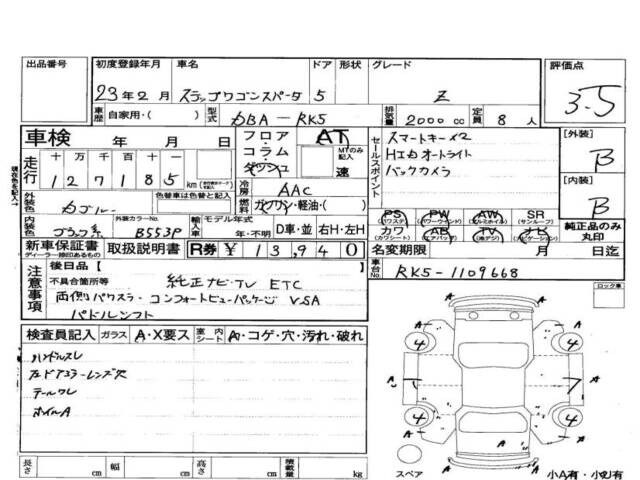 出品番号 初度登録年月 車名 ドア 形状 グレード 評価点
23年2月 ステップワゴンスパーダ 5 Z 3.5
車歴 自家用・( ) 型式 DBA-RK5 排気量 2000cc 定員 8人
車検 年 月 日 フロア・コラム・ AT MTのみ記入 速
セールスポイント スマートキー×2
HIDオートライト
バックカメラ
[外装] B
[内装] B
走行 十万 万 千 百 十 一
127185 km
冷房 AAC
燃料 ガソリン・軽油・( )
外装色 色替車は色替を記入
内装色 ブラック系 外装カラーNo. B553P 輸入車 モデル年式 年・不明 D車・並 右H・左H
PS (パワステ) PW (パワーウインド) AW (アルミホイル) SR (サンルーフ)
カワ (カワシート) AB (エアバッグ) TV ナビ (ナビゲーション)
純正品のみ丸印
新車保証書 ディーラー捺印あるもの 取扱説明書 R券 ¥13,940
名変期限 月 日迄
車台No. RK5-1109668
注意事項 後日品[ ]
不具合箇所等 純正ナビ・TV ETC
両側パワスラ・コンフォートビューパッケージ VSA
パドルシフト
ロック車
検査員記入 ガラス A・X要ス 室内シート A・コゲ・穴・汚れ・破れ
ハンドルスレ
左ドアミラーレンズ欠
テールワレ
ホイルA
4 4 4 4
A A A A A A A
長さ cm 幅 cm 高さ cm 積載量 kg
スペア 小A有・小U有